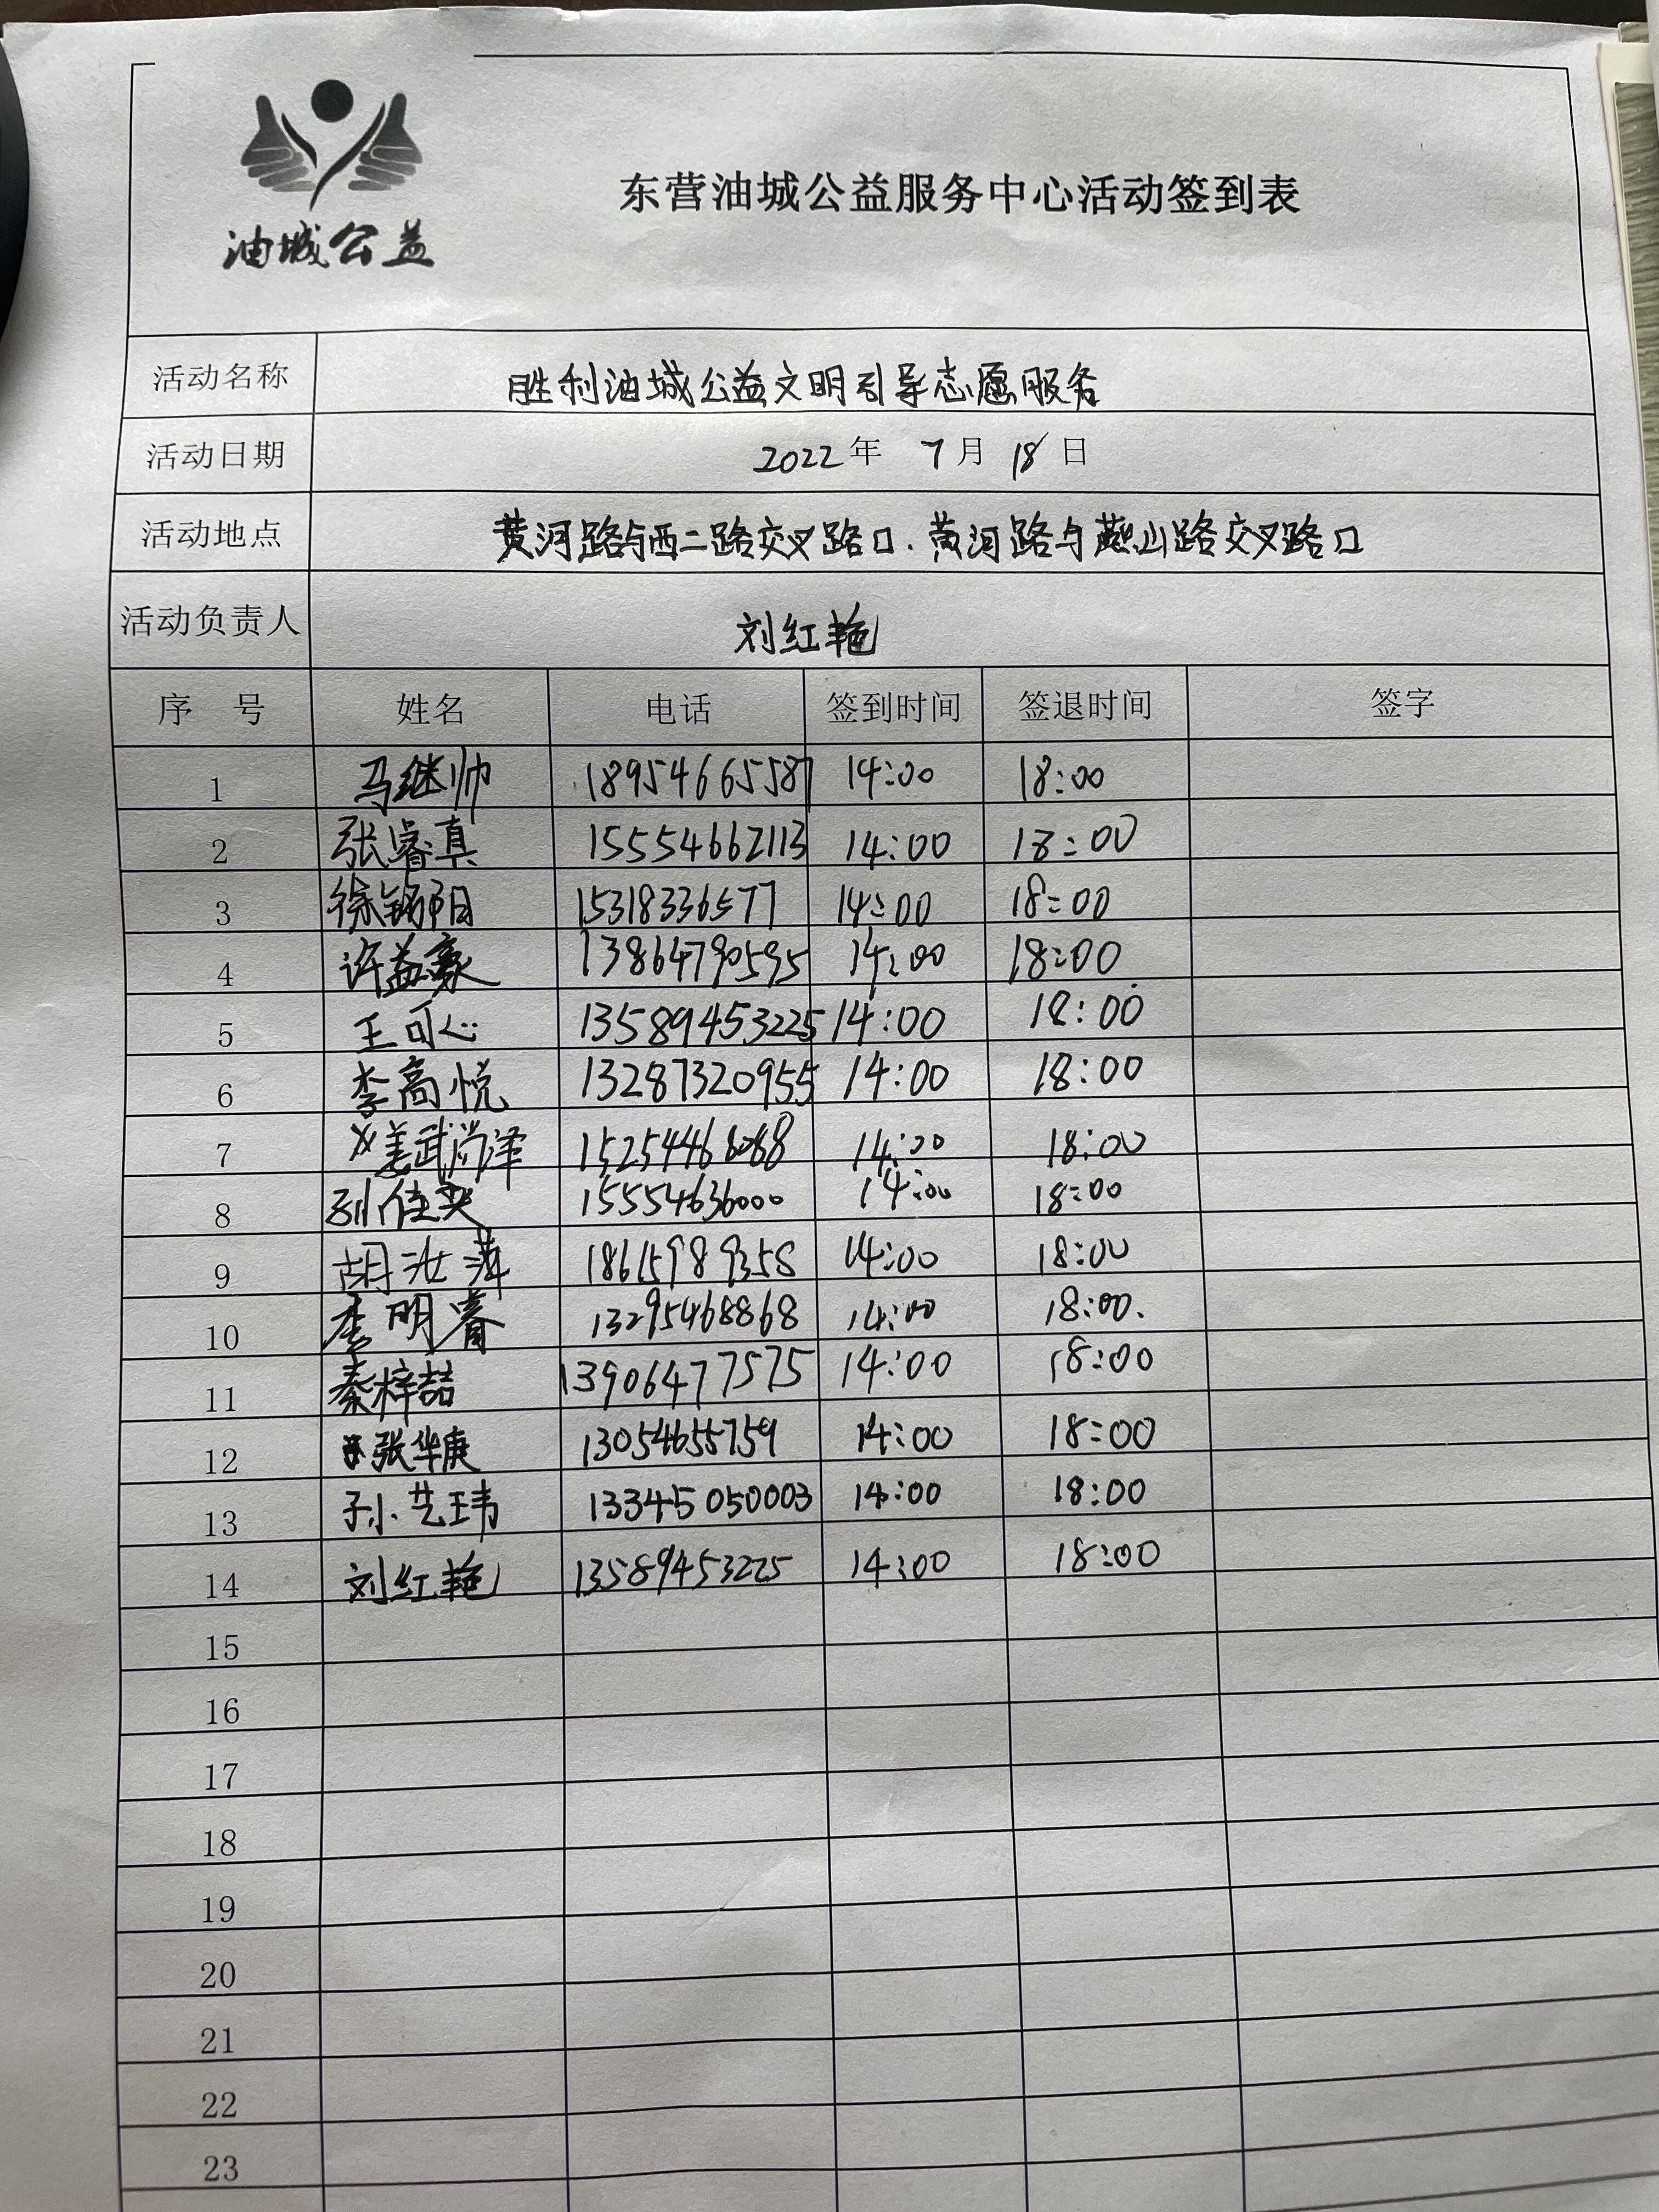 油城公益
东营油城公益服务中心活动签到表
活动名称 胜利油城公益文明引导志愿服务
活动日期 2022年 7月 18日
活动地点 黄河路与西二路交叉路口.黄河路与燕山路交叉路口
活动负责人 刘红艳
序 号 姓名 电话 签到时间 签退时间 签字
1 马继帅 18954665587 14:00 18:00
2 张睿真 15554662113 14:00 18:00
3 15318336577 14:00 18:00
4 许益豪 13864790595 14:00 18:00
5 王可心 13589453225 14:00 18:00
6 李高悦 13287320955 14:00 18:00
7 姜武尚泽 14:00 18:00
8 15554636000 14:00 18:00
9 胡汝萍 18615989358 14:00 18:00
10 李明睿 13295468868 14:00 18:00.
11 秦梓喆 13906477575 14:00 18:00
12 张华庚 13054655759 14:00 18:00
13 孙艺玮 13345050003 14:00 18:00
14 刘红艳 13589453225 14:00 18:00
15
16
17
18
19
20
21
22
23